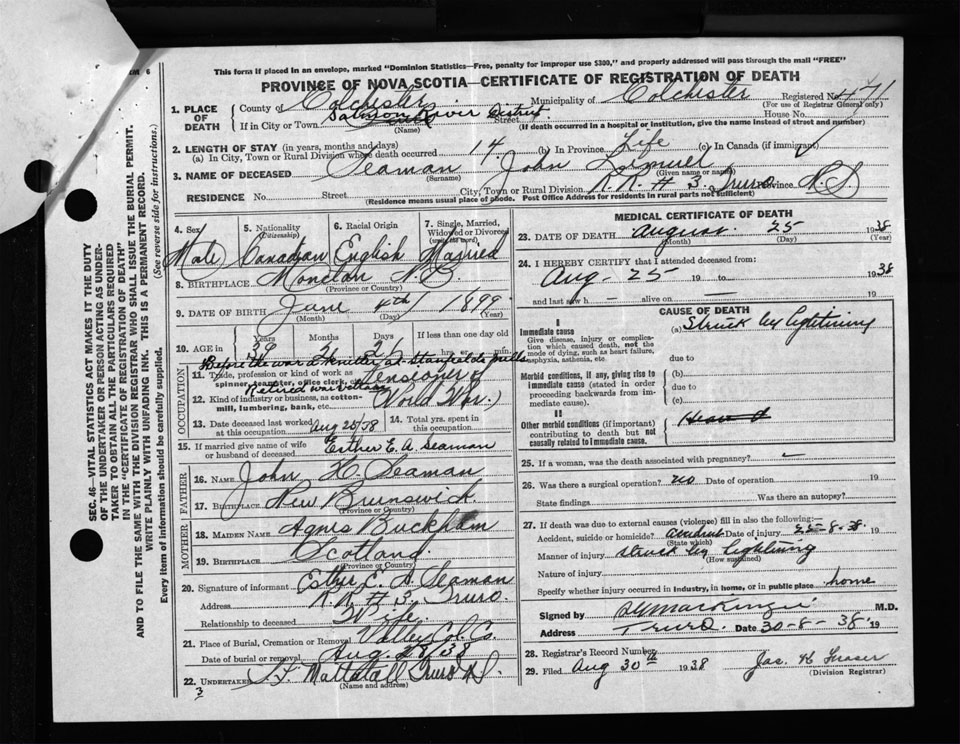 RM 6
This form if placed in an envelope, marked "Dominion Statistics—Free, penalty for improper use $300," and properly addressed will pass through the mail "FREE"
PROVINCE OF NOVA SCOTIA—CERTIFICATE OF REGISTRATION OF DEATH
1. PLACE OF DEATH County of Colchester Municipality of Colchester Registered No. 471
(For use of Registrar General only)
If in City or Town Salmon River District Street House No.
(Name) (If death occurred in a hospital or institution, give the name instead of street and number)
2. LENGTH OF STAY (in years, months and days)
(a) In City, Town or Rural Division where death occurred 14 (b) In Province Life (c) In Canada (if immigrant)
3. NAME OF DECEASED Seaman John Lemuel
(Surname) (Given name or names)
RESIDENCE No. Street City, Town or Rural Division R.R. # 3, Truro Province N.S
(Residence means usual place of abode. Post Office Address for residents in rural parts not sufficient)
SEC. 46—VITAL STATISTICS ACT MAKES IT THE DUTY
OF THE UNDERTAKER OR PERSON ACTING AS UNDER-
TAKER TO OBTAIN ALL THE PARTICULARS REQUIRED
IN THE "CERTIFICATE OF REGISTRATION OF DEATH"
AND TO FILE THE SAME WITH THE DIVISION REGISTRAR WHO SHALL ISSUE THE BURIAL PERMIT.
WRITE PLAINLY WITH UNFADING INK. THIS IS A PERMANENT RECORD.
Every item of information should be carefully supplied. (See reverse side for instructions.)
4. Sex 5. Nationality (Citizenship) 6. Racial Origin 7. Single, Married, Widowed or Divorced (write the word)
Male Canadian English Married
8. BIRTHPLACE Moncton N.B.
(Province or Country)
9. DATE OF BIRTH June 4th 1899
(Month) (Day) (Year)
10. AGE in Years Months Days If less than one day old
39 2 21 hr. min.
OCCUPATION
Before the war a knitter at Stanfields mills
11. Trade, profession or kind of work as spinner, teamster, office clerk, etc. Pensioner of
Retired war veteran
12. Kind of industry or business, as cotton-mill, lumbering, bank, etc. (World War.)
13. Date deceased last worked at this occupation Aug 25/38 14. Total yrs. spent in this occupation
15. If married give name of wife or husband of deceased Esther E. A. Seaman
FATHER
16. NAME John H. Seaman
17. BIRTHPLACE New Brunswick
(Province or Country)
MOTHER
18. MAIDEN NAME Agnes Buckham
19. BIRTHPLACE Scotland
(Province or Country)
20. Signature of informant Esther E. A. Seaman
Address R.R. # 3, Truro
Relationship to deceased Wife
21. Place of Burial, Cremation or Removal Valley Col. Co.
Date of burial or removal Aug. 28/38
22. UNDERTAKER Mattatall Truro N.S.
(Name and address)
3
MEDICAL CERTIFICATE OF DEATH
23. DATE OF DEATH August 25 1938
(Month) (Day) (Year)
24. I HEREBY CERTIFY that I attended deceased from:
Aug - 25 19 to 1938
and last saw h— alive on — 19
CAUSE OF DEATH
I
Immediate cause (a) Struck by lightning
Give disease, injury or complication which caused death, not the mode of dying, such as heart failure, asphyxia, asthenia, etc. due to
Morbid conditions, if any, giving rise to immediate cause (stated in order proceeding backwards from immediate cause). (b)
due to
(c)
II
Other morbid conditions (if important) contributing to death but not causally related to immediate cause.
25. If a woman, was the death associated with pregnancy? —
26. Was there a surgical operation? no Date of operation
State findings Was there an autopsy?
27. If death was due to external causes (violence) fill in also the following:—
Accident, suicide or homicide? accident Date of injury 25-8-38 19
(State which)
Manner of injury struck by lightning
(How sustained)
Nature of injury
Specify whether injury occurred in industry, in home, or in public place home
Signed by MacKenzie M.D.
Address Truro. Date 30-8-38 19
28. Registrar's Record Number
29. Filed Aug 30th 1938 Jas. H Fraser
(Division Registrar)